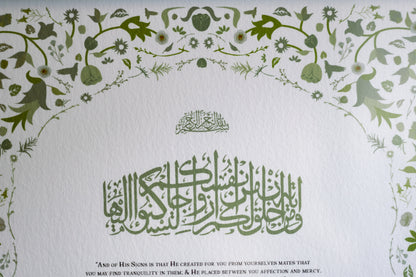 بسم الله الرحمن الرحيم
ومن آياته أن خلق لكم من أنفسكم أزواجا لتسكنوا إليها
"And of His Signs is that He created for you from yourselves mates that
you may find tranquility in them; & He placed between you affection and mercy.